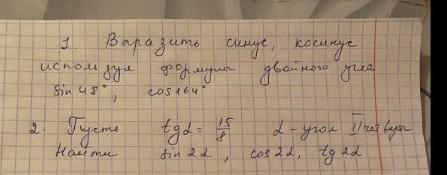 1. Выразить синус, косинус
используя формулы двойного угла
sin 48°, cos 164°
2. Пусть tgα = 15/8 α - угол II четверти
Найти sin 2α, cos 2α, tg 2α